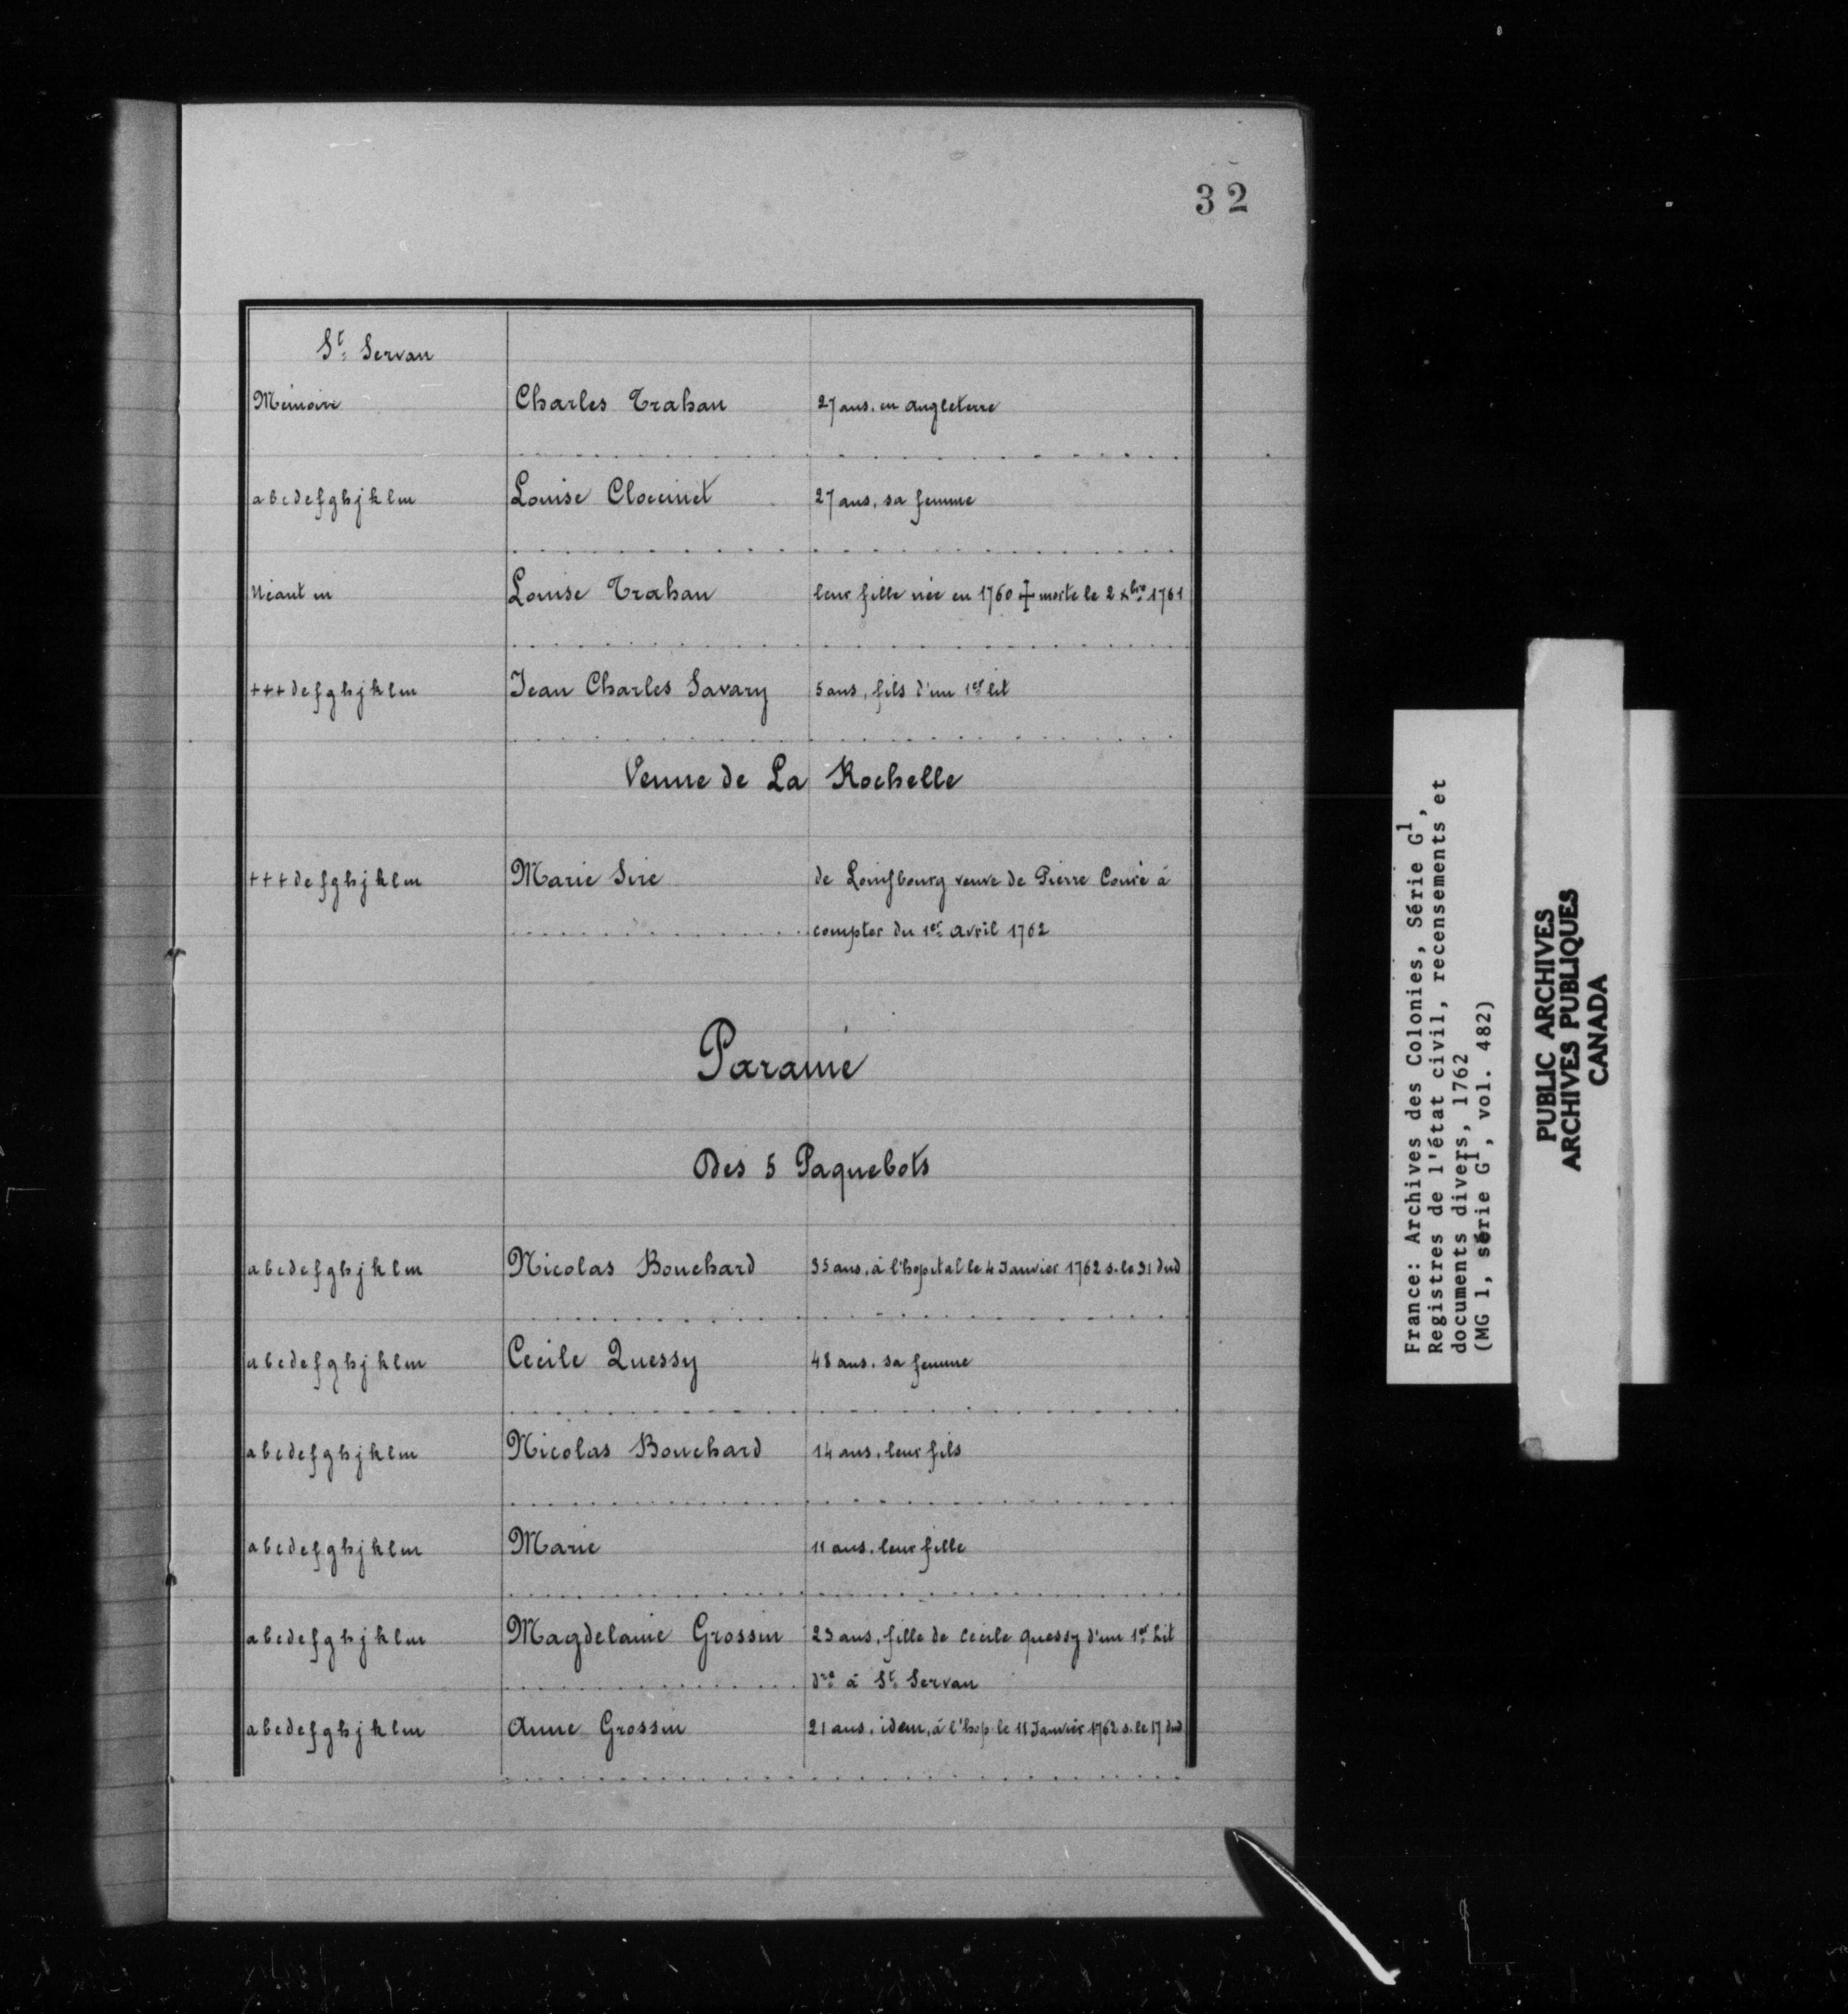 32
St. Servan
Mémoire Charles Trahan 27 ans. en angleterre
abcdefghjklm Louise Clocinet 27 ans, sa femme
Néant m Louise Trahan leur fille née en 1760 ‡ morte le 2 xbre 1761
+++defghjklm Jean Charles Savary 5 ans, fils d'un 1er lit
Venue de La Rochelle
+++defghjklm Marie Sire de Louisbourg veuve de Pierre Couré à
compter du 1er avril 1762
Paramé
Des 5 Paquebots
abcdefghjklm Nicolas Bouchard 35 ans, à l'hopital le 4 Janvier 1762 s. le 31 dud
abcdefghjklm Cecile Quessy 48 ans. sa femme
abcdefghjklm Nicolas Bouchard 14 ans. leur fils
abcdefghjklm Marie 11 ans. leur fille
abcdefghjklm Magdelaine Grossin 23 ans, fille de Cecile Quessy d'un 1er Lit
dre à St. Servan
abcdefghjklm Anne Grossin 21 ans. idem, à l'hop. le 11 Janvier 1762 s. le 17 dud
France: Archives des Colonies, Série G1,
Registres de l'état civil, recensements et
documents divers, 1762
(MG 1, série G1, vol. 482)
PUBLIC ARCHIVES
ARCHIVES PUBLIQUES
CANADA